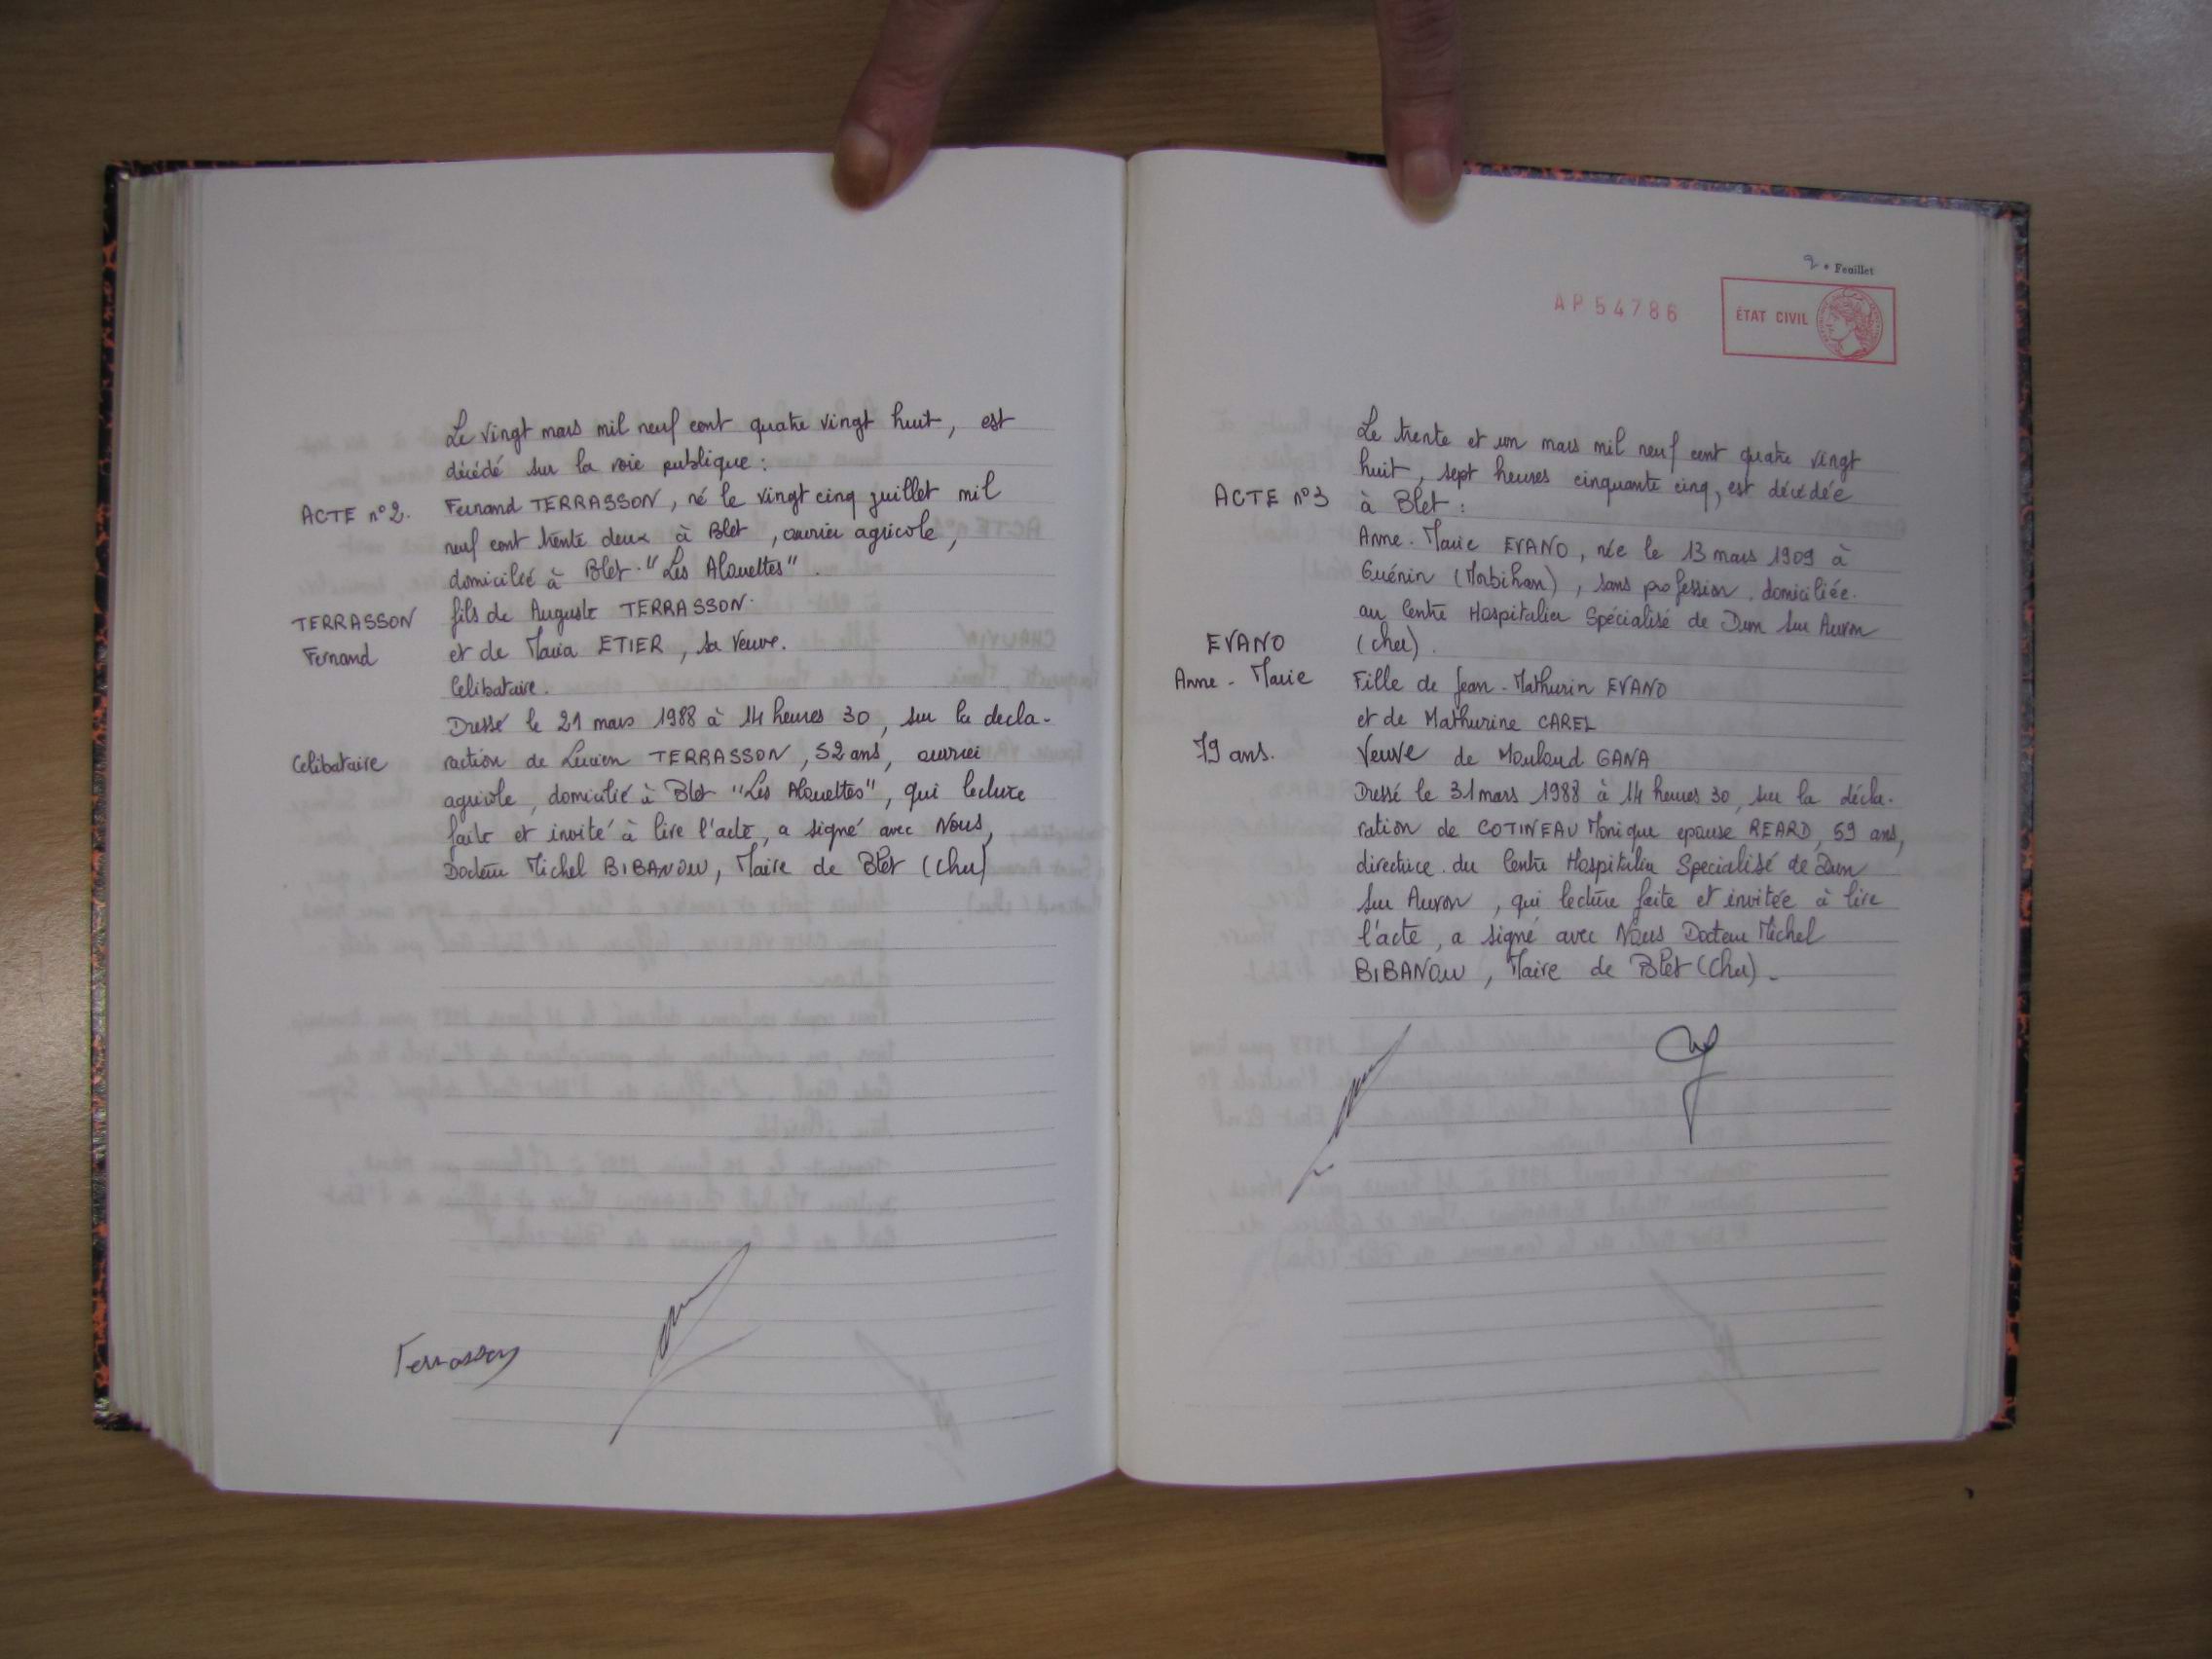 Le vingt mars mil neuf cent quatre vingt huit, est
décédé sur la voie publique :
ACTE n°2. Fernand TERRASSON, né le vingt cinq juillet mil
neuf cent trente deux à Blet, ouvrier agricole,
domicilié à Blet. "Les Alouettes".
TERRASSON fils de Auguste TERRASSON.
Fernand et de Maria ETIER, sa veuve.
Celibataire.
Dressé le 21 mars 1988 à 14 heures 30, sur la decla-
Celibataire ration de Lucien TERRASSON, 52 ans, ouvrier
agricole, domicilié à Blet "Les Alouettes", qui lecture
faite et invité à lire l'acte, a signé avec Nous,
Docteur Michel BIBANOW, Maire de Blet (Cher)
Terrasson
2e Feuillet
AP54786
ÉTAT CIVIL
Le trente et un mars mil neuf cent quatre vingt
huit, sept heures cinquante cinq, est décédée
ACTE n°3 à Blet :
Anne-Marie EVANO, née le 13 mars 1909 à
Guénin (Morbihan), sans profession. domiciliée.
au Centre Hospitalier Spécialisé de Dun sur Auron
EVANO (cher).
Anne-Marie Fille de Jean-Mathurin EVANO
et de Mathurine CAREL
79 ans. Veuve de Mouloud GANA
Dressé le 31 mars 1988 à 14 heures 30, sur la décla-
ration de COTINEAU Monique epouse REARD, 59 ans,
directrice du Centre Hospitalier Specialisé de Dun
sur Auron, qui lecture faite et invitée à lire
l'acte, a signé avec Nous Docteur Michel
BIBANOW, Maire de Blet (Cher).